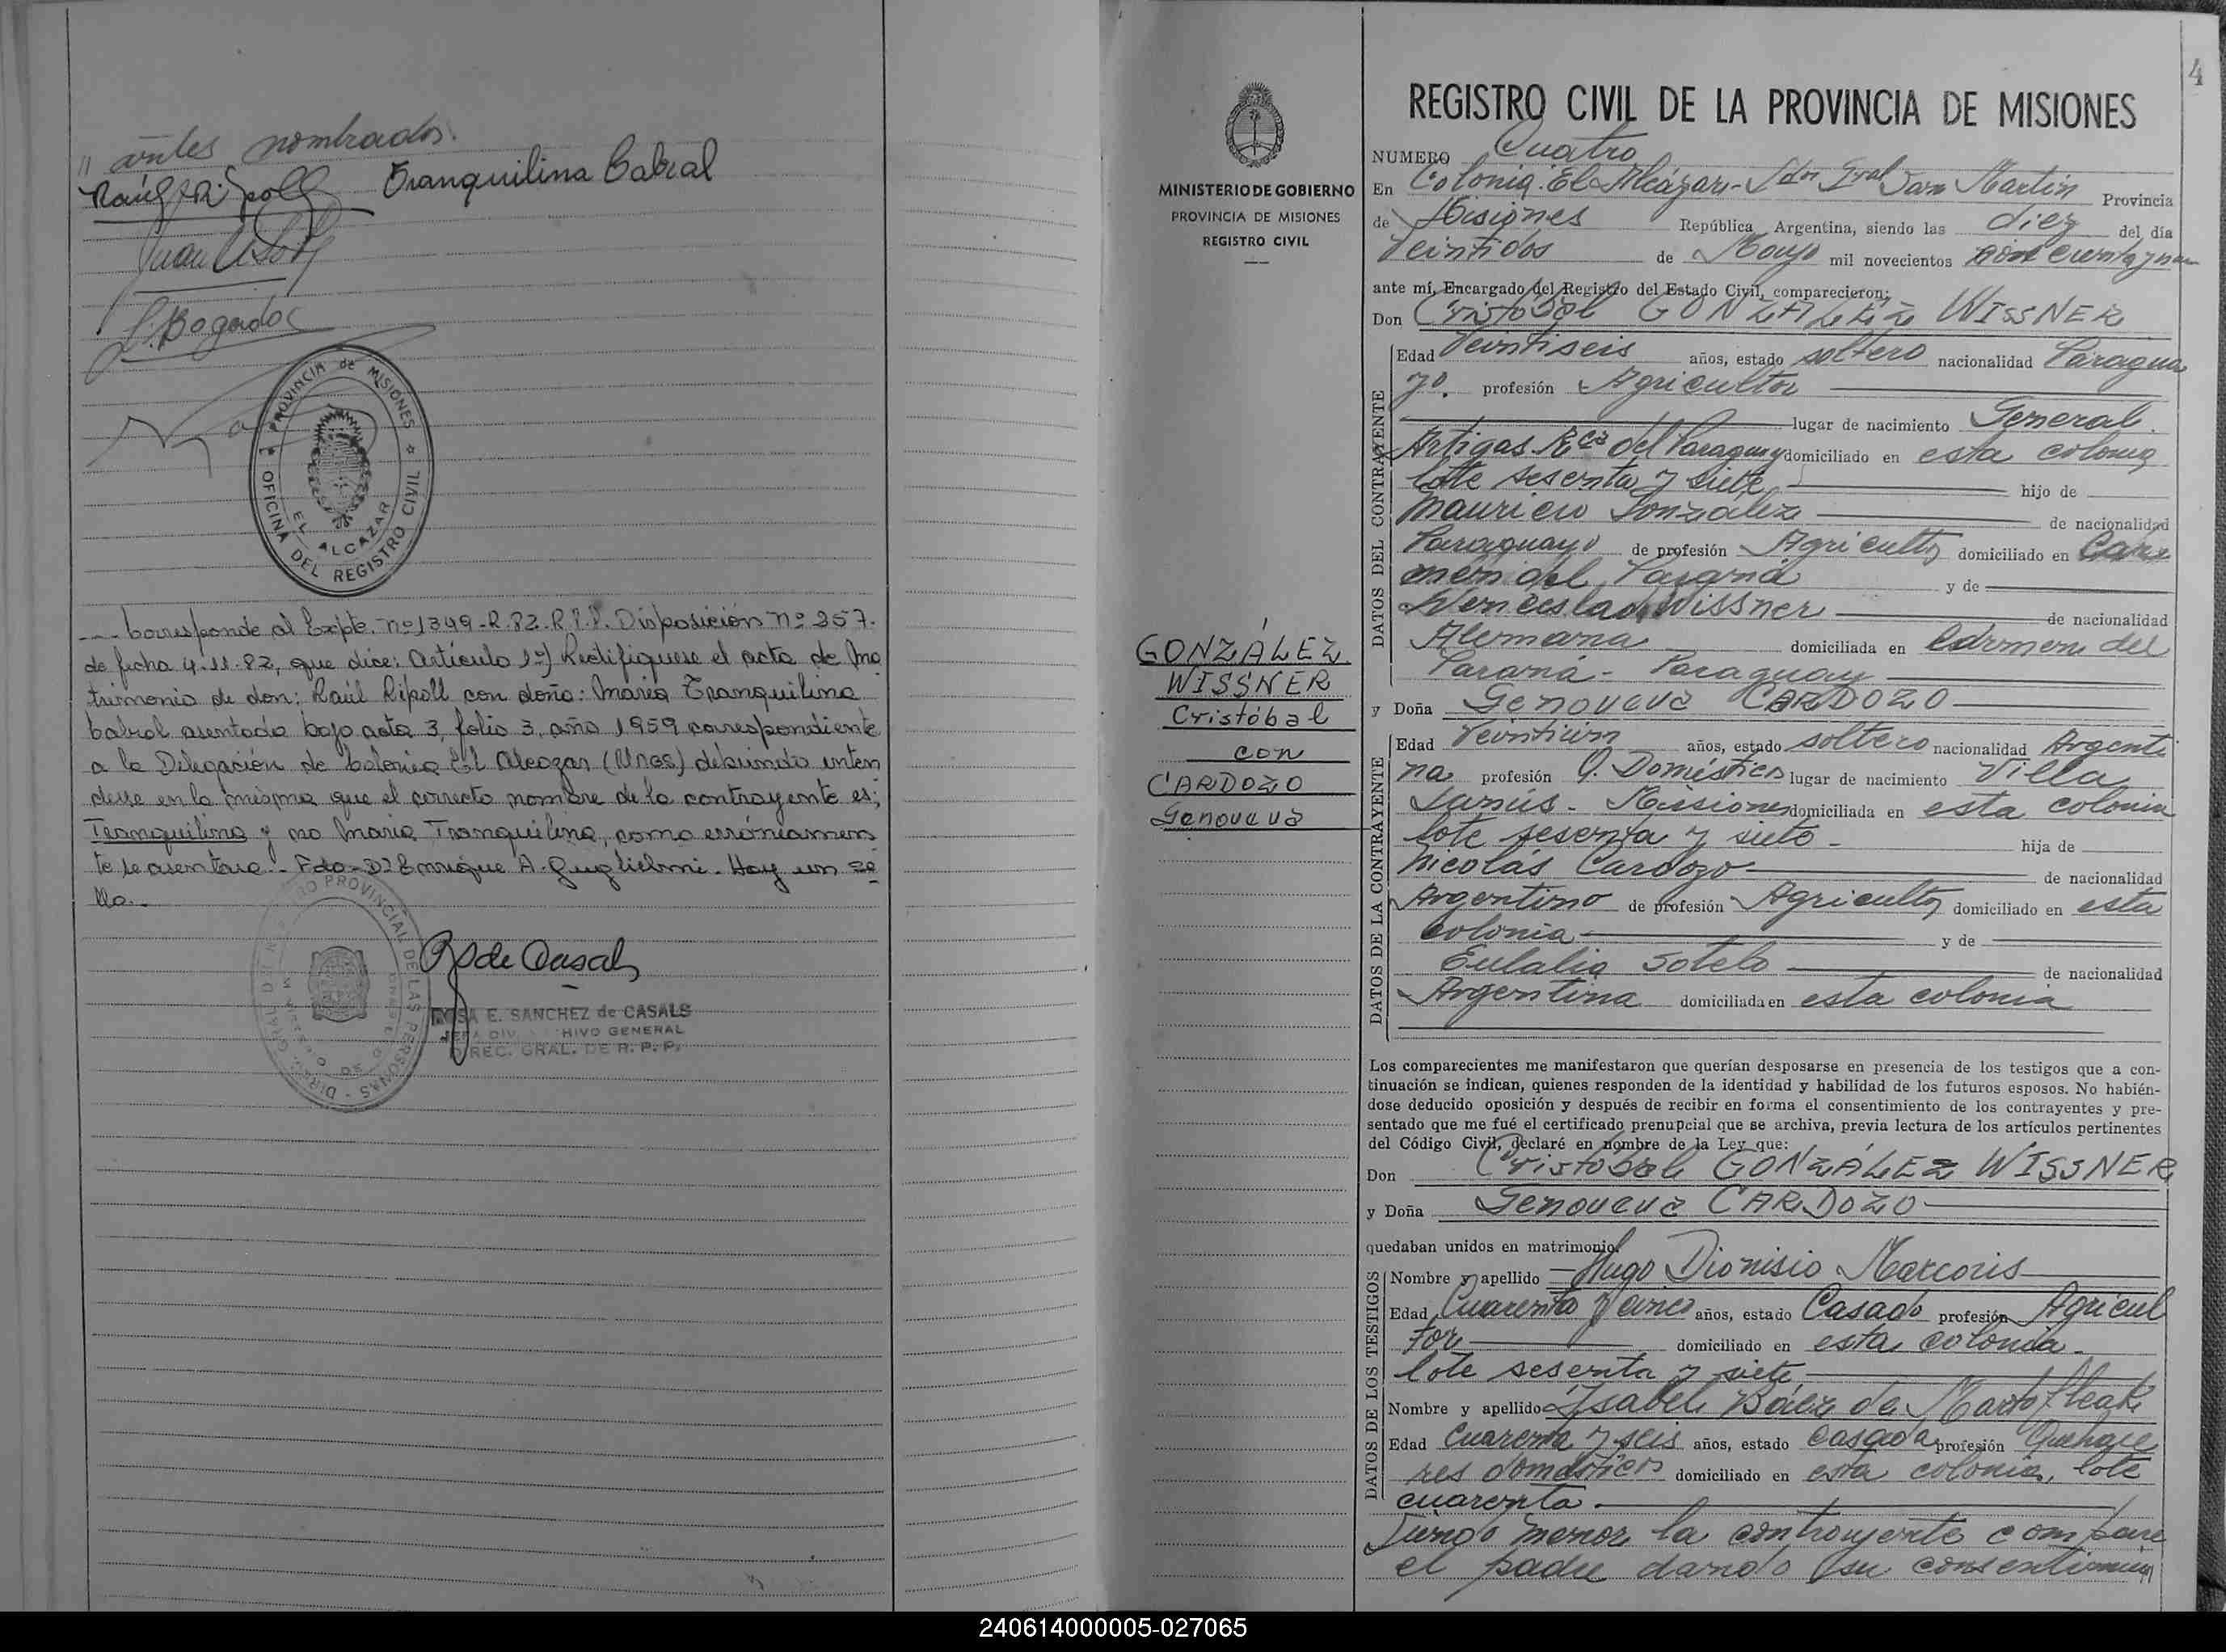 // antes nombrados.
Raúl Ripoll Tranquilina Cabral
L. Bogados
PROVINCIA de MISIONES
EL ALCAZAR
OFICINA DEL REGISTRO CIVIL
--- Corresponde al Expte. nº 1349-R-82-R.P.P. Disposición nº 357-
de fecha 4-11-82, que dice: Artículo 1º) Rectifíquese el acta de Ma
trimonio de don: Raúl Ripoll con doña: María Tranquilina
Cabral asentada bajo acta 3, folio 3, año 1959 correspondiente
a la Delegación de Colonia El Alcazar (Mnes) debiendo enten
derse en la misma que el correcto nombre de la contrayente es;
Tranquilina y no María Tranquilina, como erróneamen
te se asentara.- Fdo- Dº Enrique A. Guglielmi. Hay un se
llo.-
PROVINCIAL DE LAS PERSONAS
ROSA E. SANCHEZ de CASALS
JEFA DIV. ARCHIVO GENERAL
DIREC. GRAL. DE R. P. P.
4
MINISTERIO DE GOBIERNO
PROVINCIA DE MISIONES
REGISTRO CIVIL
GONZÁLEZ
WISSNER
Cristóbal
con
CARDOZO
Genoveva
REGISTRO CIVIL DE LA PROVINCIA DE MISIONES
NUMERO Cuatro
En Colonia El Alcázar - Gral San Martín Provincia
de Misiones República Argentina, siendo las diez del día
Veintidos de Mayo mil novecientos cincuenta y nueve
ante mí, Encargado del Registro del Estado Civil, comparecieron:
Don Cristóbal GONZÁLEZ WISSNER
DATOS DEL CONTRAYENTE
Edad Veintiseis años, estado soltero nacionalidad Paragua
yo. profesión Agricultor
lugar de nacimiento General
Artigas Rca del Paraguay domiciliado en esta colonia
lote sesenta y siete hijo de
Mauricio Gonzalez de nacionalidad
Paraguayo de profesión Agricultor domiciliado en Car
men del Paraná y de
Wenceslada Wissner de nacionalidad
Alemana domiciliada en Carmen del
Paraná - Paraguay
y Doña Genoveva CARDOZO
DATOS DE LA CONTRAYENTE
Edad Veintiún años, estado soltero nacionalidad Argenti
na profesión Q. Domésticos lugar de nacimiento Villa
Lanús - Misiones domiciliada en esta colonia
lote sesenta y siete - hija de
Nicolás Cardozo de nacionalidad
Argentino de profesión Agricultor domiciliado en esta
colonia y de
Eulalia Sotelo de nacionalidad
Argentina domiciliada en esta colonia
Los comparecientes me manifestaron que querían desposarse en presencia de los testigos que a con-
tinuación se indican, quienes responden de la identidad y habilidad de los futuros esposos. No habién-
dose deducido oposición y después de recibir en forma el consentimiento de los contrayentes y pre-
sentado que me fué el certificado prenupcial que se archiva, previa lectura de los artículos pertinentes
del Código Civil, declaré en nombre de la Ley que:
Don Cristóbal GONZÁLEZ WISSNER
y Doña Genoveva CARDOZO
quedaban unidos en matrimonio.
DATOS DE LOS TESTIGOS
Nombre y apellido Hugo Dionisio Marcoris
Edad Cuarenta y cinco años, estado Casado profesión Agricul
tor domiciliado en esta colonia -
lote sesenta y siete
Nombre y apellido Isabel Báez de
Edad Cuarenta y seis años, estado casada profesión Quehace
res domésticos domiciliado en esta colonia, lote
cuarenta.
Siendo menor la contrayente compare
el padre dando su consentimien
240614000005-027065